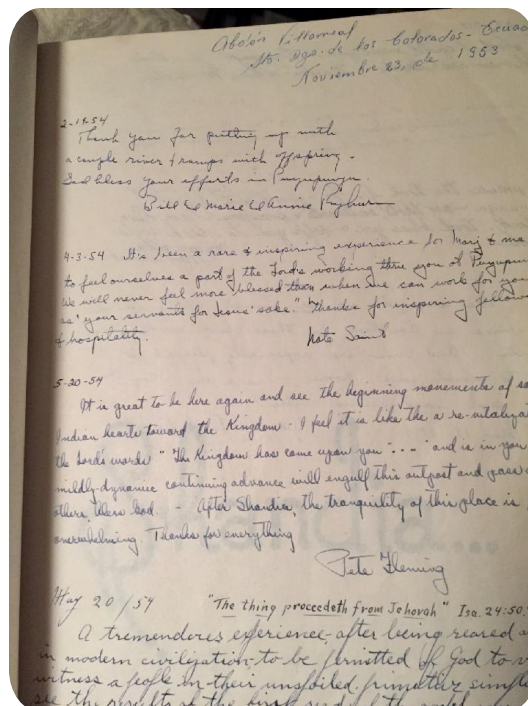 Abdón Villarreal
Sto. Dgo. de los Colorados - Ecuado
Noviembre 23, de 1953
2-19-54
Thank you for putting up with
a couple river tramps with offspring.
God bless your efforts in Puyupungu.
Bill Ed Marie Ed Annie
4-3-54 It's been a rare & inspiring experience for Marj & me
to feel ourselves a part of the Lord's working thru you at Puyupun
We will never feel more blessed than when we can work for you
as "your servants for Jesus' sake." Thanks for inspiring fellow
& hospitality.
Nate Saint
5-20-54
It is great to be here again and see the beginning movements of so
Indian hearts toward the Kingdom - I feel it is like the a re-vitaliza
the Lord's words "The Kingdom has come upon you" . . . "and is in you
mildly-dynamic continuing advance will engulf this outpost and pass
others, bless God. - After Shandia, the tranquility of this place is
overwhelming. Thanks for everything
Pete Fleming
May 20/54 "The thing proceedeth from Jehovah" Isa. 24:50.
A tremendous experience, after being reared
in modern civilization, to be permitted of God to
witness a people in their unspoiled, primitive simpl
see the results of the first